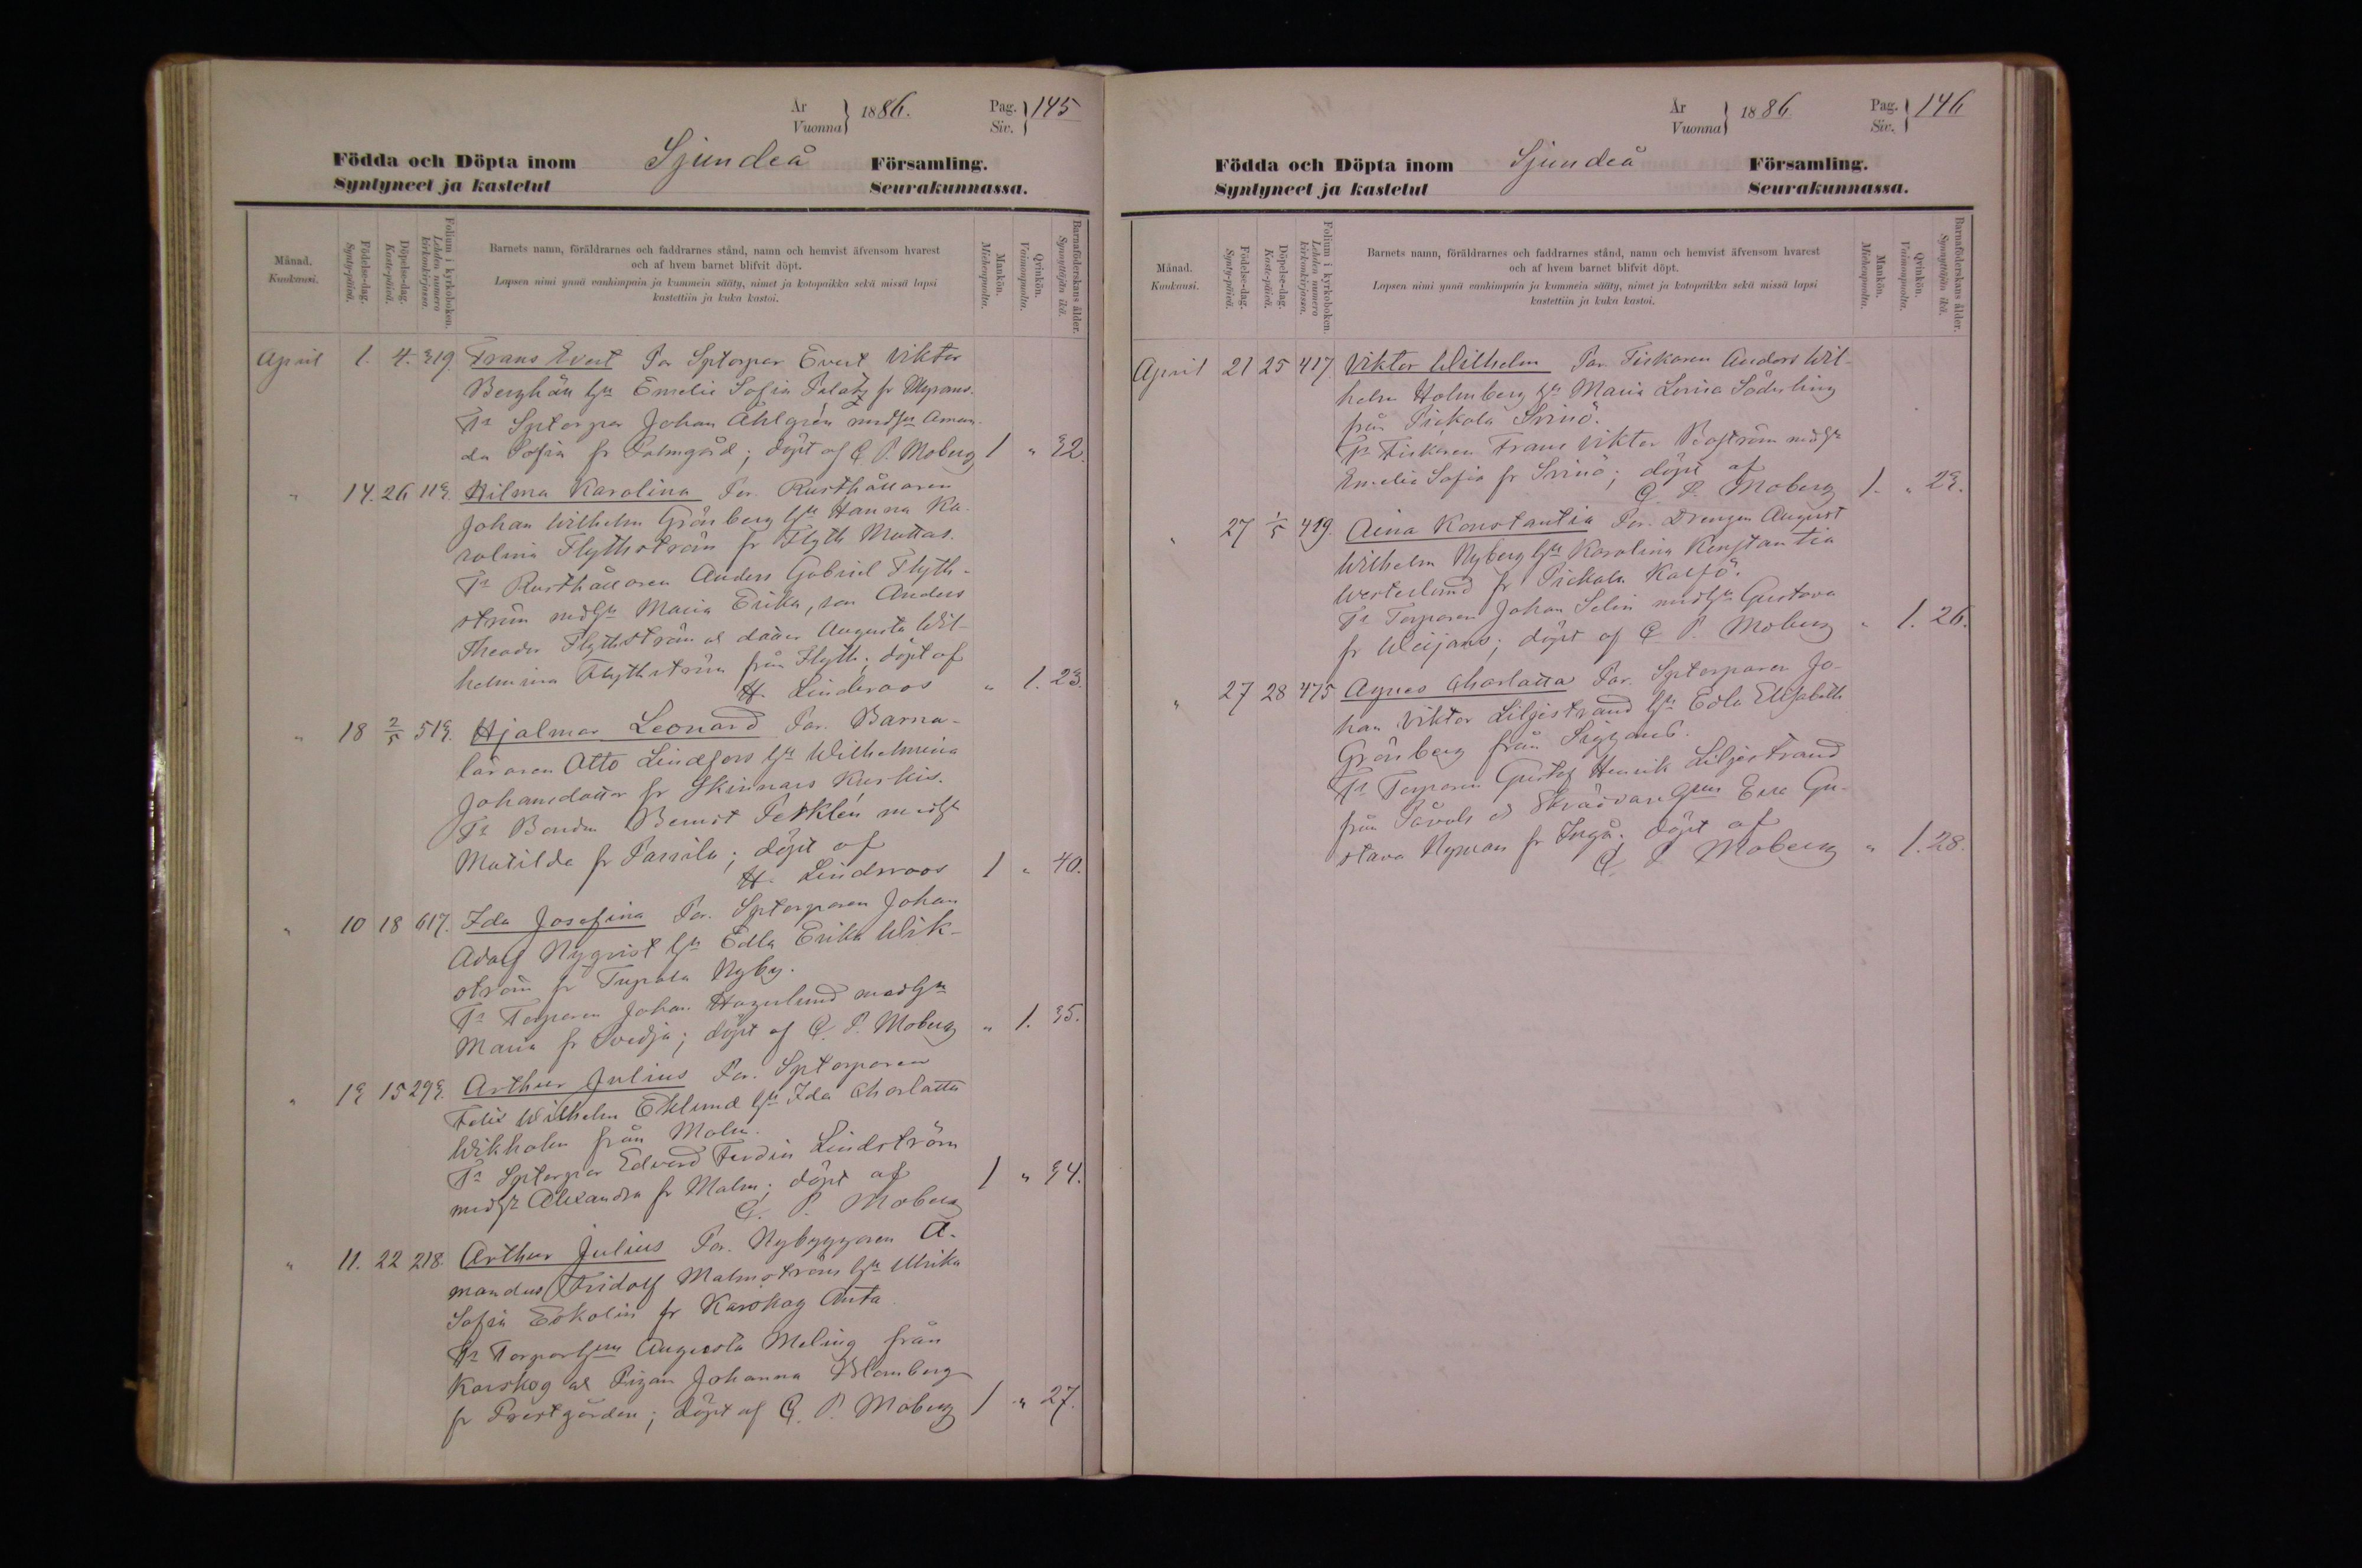 År
Vuonna } 1886.
Pag.
Siv. } 145
Födda och Döpta inom Sjundeå Församling.
Syntyneet ja kastetut Seurakunnassa.
Månad.
Kuukausi.
Födelse-dag.
Synty-päivä.
Döpelse-dag.
Kaste-päivä.
Folium i kyrkoboken.
Lehden numero
kirkonkirjassa.
Barnets namn, föräldrarnes och faddrarnes stånd, namn och hemvist äfvensom hvarest
och af hvem barnet blifvit döpt.
Lapsen nimi ynnä vanhimpain ja kummein sääty, nimet ja kotopaikka sekä missä lapsi
kastettiin ja kuka kastoi.
Mankön.
Miehenpuolta.
Qvinkön.
Vaimonpuolta.
Barnaföderskans ålder.
Synnyttäjän ikä.
April 1. 4. 319. Frans Evert Par Sptorpar Evert Viktor
Berghän hu Emelie Sofia fr Nyrans.
Fr Sptorpar Johan Ahlgrén medhu Aman-
da Sofia fr Palmgård; döpt af C. P. Moberg 1 " 32.
" 14. 26 113. Hilma Karolina Par. Rusthållaren
Johan Wilhelm Grönberg hu Hanna Ka-
rolina Flythström fr Flyth Mattas.
Fr Rusthållaren Anders Gabriel Flyth-
ström medhu Maria Erika, son Anders
Theodor Flythström o dotter Augusta Wil-
helmina Flythström från Flyth; döpt af
H. Lindroos " 1. 23.
" 18 2/5 513. Hjalmar Leonard Par. Barna-
läraren Otto Lindfors hu Wilhelmina
Johansdotter fr Skinnars Kurkis.
Fr Bonden Bernt Perklén medhu
Matilda fr Passila; döpt af
H. Lindroos 1 " 40.
" 10 18 617. Ida Josefina Par. Sptorparen Johan
Adolf Nyqvist hu Edla Erika Wik-
ström fr Tupala Nyby.
Fr Torparen Johan Hagerlund medhu
Maria fr Svedja; döpt af C. P. Moberg " 1. 35.
" 13 15 293. Arthur Julius Par. Sptorparen
Felix Wilhelm Eklund hu Ida Charlotta
Wikholm från Malm.
Fr Sptorpar Edvard Ferdin Lindström
medhu Alexandra fr Malm; döpt af 1 " 34.
C. P. Moberg
" 11. 22 218. Arthur Julius Par. Nybyggaren A-
mandus Fridolf Malmström hu Ulrika
Sofia Eskolin fr Karskog Anta
Fr Torparhun Augusta Meling från
Karskog o Pigan Johanna Blomberg
fr Prestgården; döpt af C. P. Moberg 1 " 27.
År
Vuonna } 1886
Pag.
Siv. } 146
Födda och Döpta inom Sjundeå Församling.
Syntyneet ja kastetut Seurakunnassa.
Månad.
Kuukausi.
Födelse-dag.
Synty-päivä.
Döpelse-dag.
Kaste-päivä.
Folium i kyrkoboken.
Lehden numero
kirkonkirjassa.
Barnets namn, föräldrarnes och faddrarnes stånd, namn och hemvist äfvensom hvarest
och af hvem barnet blifvit döpt.
Lapsen nimi ynnä vanhimpain ja kummein sääty, nimet ja kotopaikka sekä missä lapsi
kastettiin ja kuka kastoi.
Mankön.
Miehenpuolta.
Qvinkön.
Vaimonpuolta.
Barnaföderskans ålder.
Synnyttäjän ikä.
April 21 25 417. Viktor Wilhelm Par Fiskaren Anders Wil-
helm Holmberg hu Maria Lovisa Söderling
från Pickala Svinö.
Fr Fiskaren Frans Viktor Boström medhu
Emelie Sofia fr Svinö; döpt af
C. P. Moberg 1. " 23.
" 27 1/5 419. Aina Konstantia Par. Drengen August
Wilhelm Nyberg hu Karolina Konstantia
Westerlund fr Pickala Kalfö.
Fr Torparen Johan Selin medhu Gustava
fr Weijans; döpt af C. P. Moberg " 1. 26.
" 27 28 475 Agnes Charlotta Par. Sptorparen Jo-
han Viktor Liljestrand hu Edla Elisabeth
Grönberg från Siggans.
Fr Torparen Gustaf Henrik Liljestrand
från Påvals o Skräddarehun Eva Gu-
stava Nyman fr Ingå; döpt af
C. P. Moberg " 1. 28.